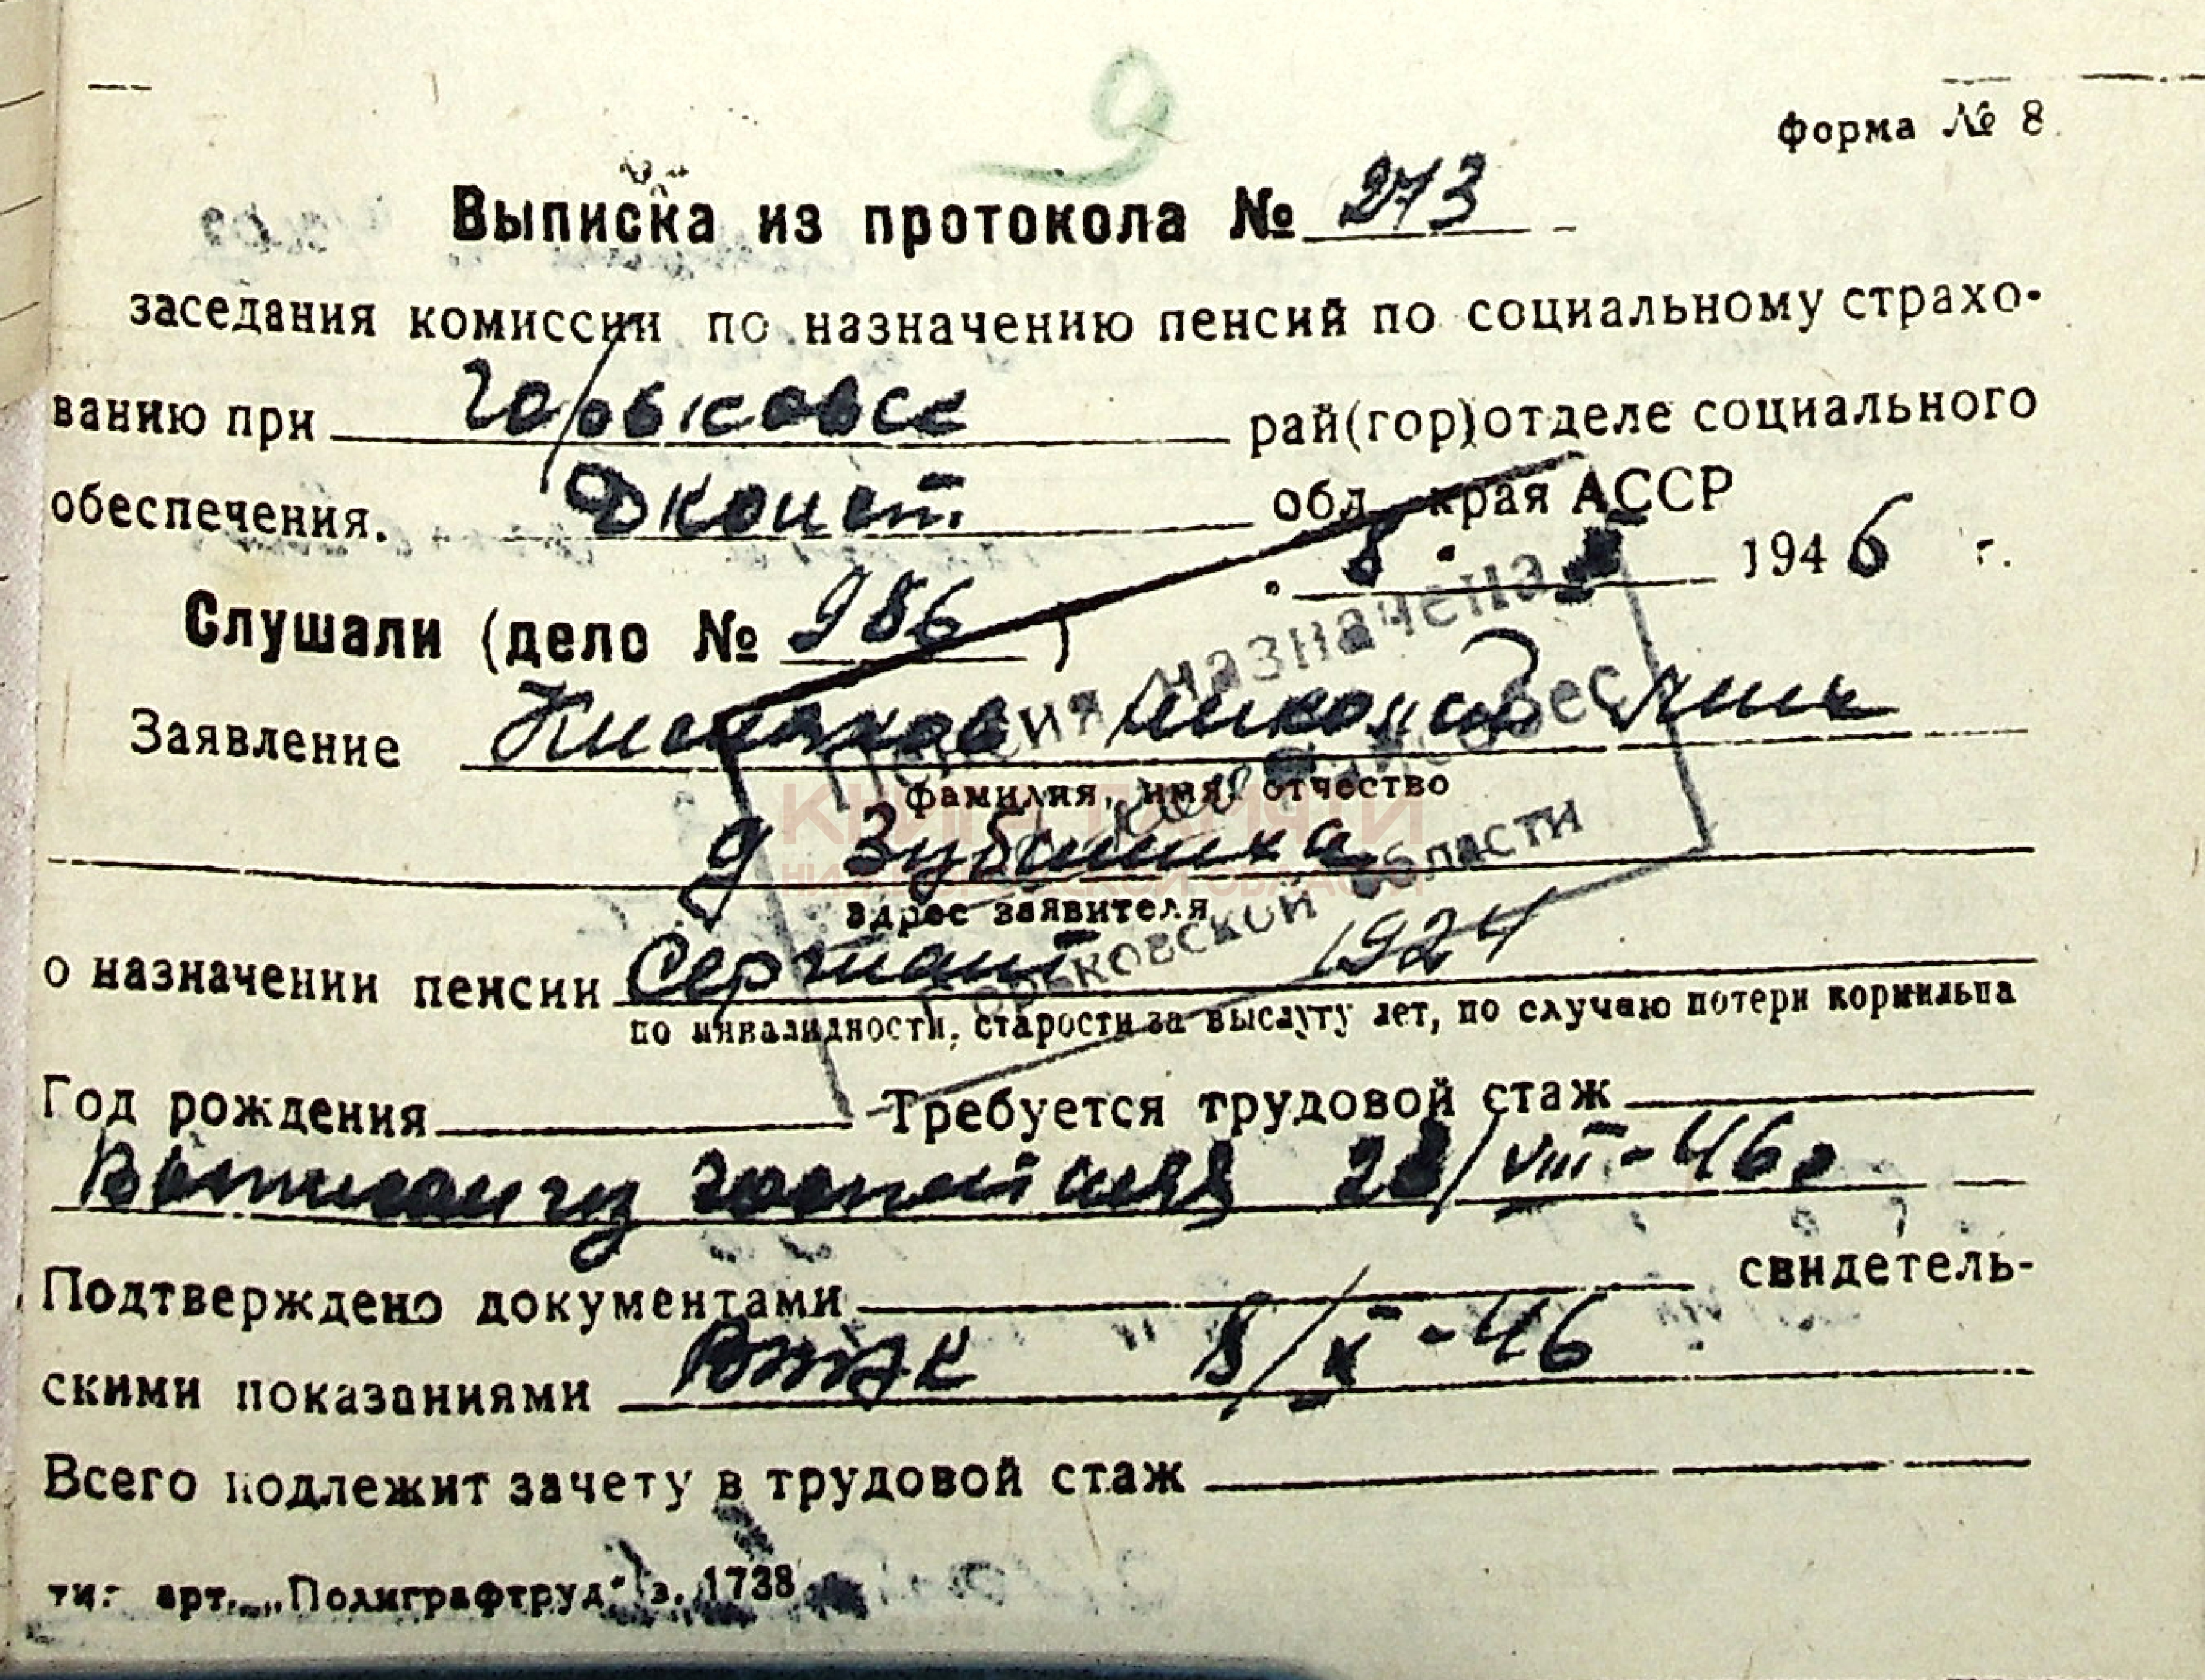 9
форма № 8
Выписка из протокола № 273
заседания комиссии по назначению пенсий по социальному страхо-
ванию при Горьковск рай(гор)отделе социального
обеспечения. обл. края АССР
8 1946 г.
Слушали (дело № 986)
Заявление
фамилия, имя, отчество
д
адрес заявителя
о назначении пенсии Сержант 1924
по инвалидности, старости за выслугу лет, по случаю потери кормильца
Год рождения Требуется трудовой стаж
Выписан из госпиталя 28/VIII-46г
Подтверждено документами свидетель-
скими показаниями ВТЭК 8/X-46
Всего подлежит зачету в трудовой стаж
тип. арт. „Полиграфтруд" з. 1738
Пенсия назначена
Горьковской области
КНИГА ПАМЯТИ
НИЖЕГОРОДСКОЙ ОБЛАСТИ